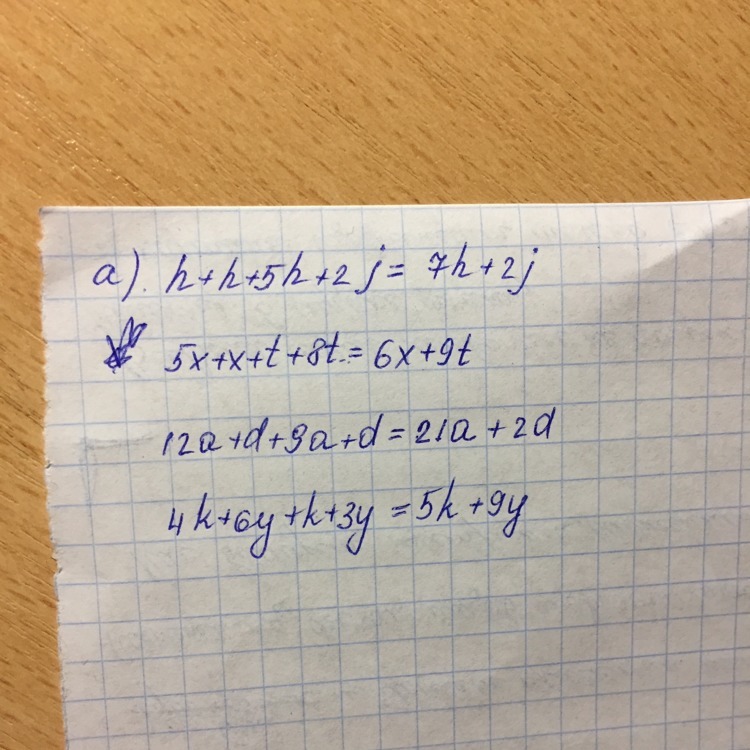 a). h+h+5h+2j = 7h+2j
5x+x+t+8t = 6x+9t
12a+d+9a+d = 21a+2d
4k+6y+k+3y = 5k+9y